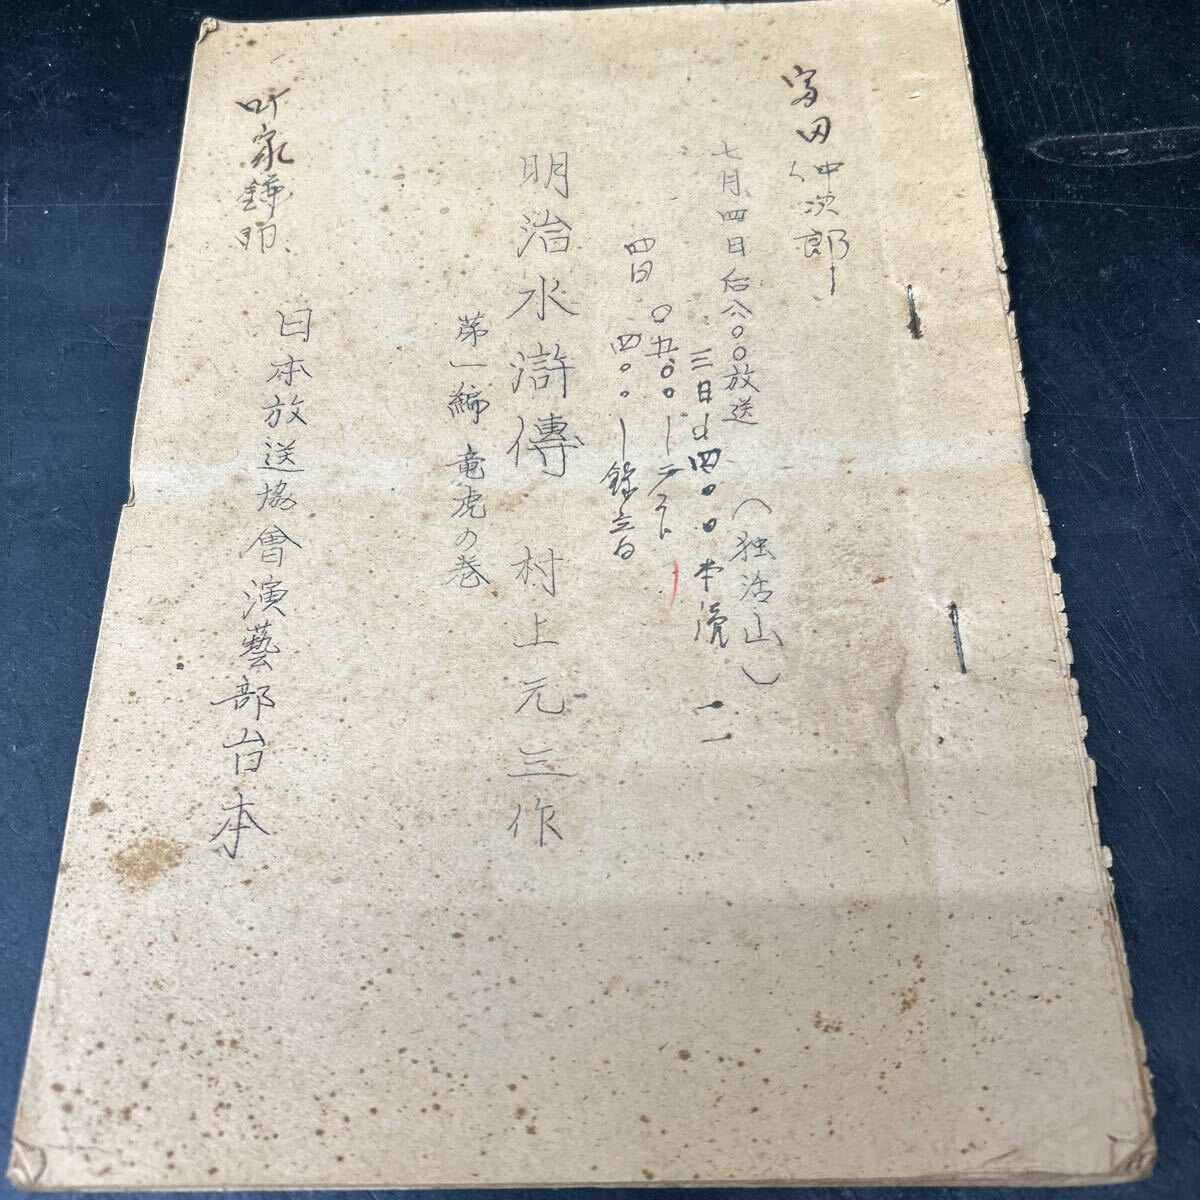 富田仲次郎
七月四日后八〇〇放送 (独活山)
三日 四〇〇 本読 一一
〇五〇〇ーテスト
四日 四〇〇ー録音
明治水滸傳 村上元三作
第一編 竜虎の巻
日本放送協會演藝部台本